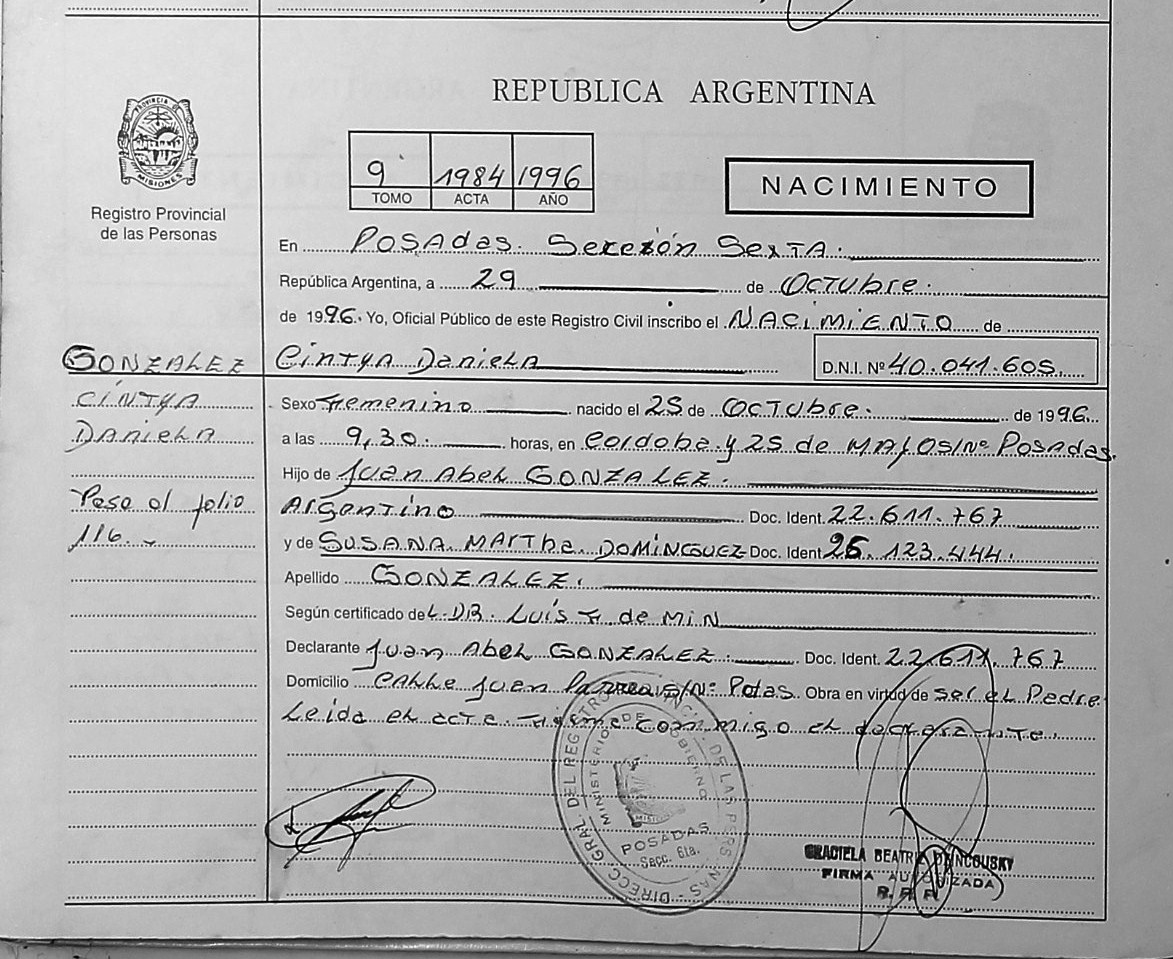 REPUBLICA ARGENTINA
PROVINCIA DE MISIONES
Registro Provincial
de las Personas
9 1984 1996
TOMO ACTA AÑO
NACIMIENTO
En Posadas. Sección Sexta.
República Argentina, a 29 de Octubre.
de 1996. Yo, Oficial Público de este Registro Civil inscribo el NACIMIENTO de
GONZALEZ Cintya Daniela D.N.I. Nº 40.041.605.
CÍNTYA
Daniela
Sexo Femenino nacido el 25 de Octubre. de 1996.
a las 9,30. horas, en Cordoba y 25 de Mayo S/Nº Posadas.
Hijo de Juan Abel GONZALEZ.
Pasa al folio
116.
Argentino Doc. Ident. 22.611.767
y de SUSANA Martha DOMINGUEZ Doc. Ident. 26.123.444.
Apellido GONZALEZ.
Según certificado de L. DR. Luís F. de Min
Declarante Juan Abel GONZALEZ. Doc. Ident. 22.611.767
Domicilio Calle Juan S/Nº Pdas. Obra en virtud de ser el Padre
Leida el acta firma conmigo el declarante.
DIRECC. GRAL. DEL REGISTRO PROVINCIAL DE LAS PERSONAS
MINISTERIO DE GOBIERNO
MISIONES
POSADAS
Secc. 6ta.
GRACIELA BEATRIZ
FIRMA AUTORIZADA